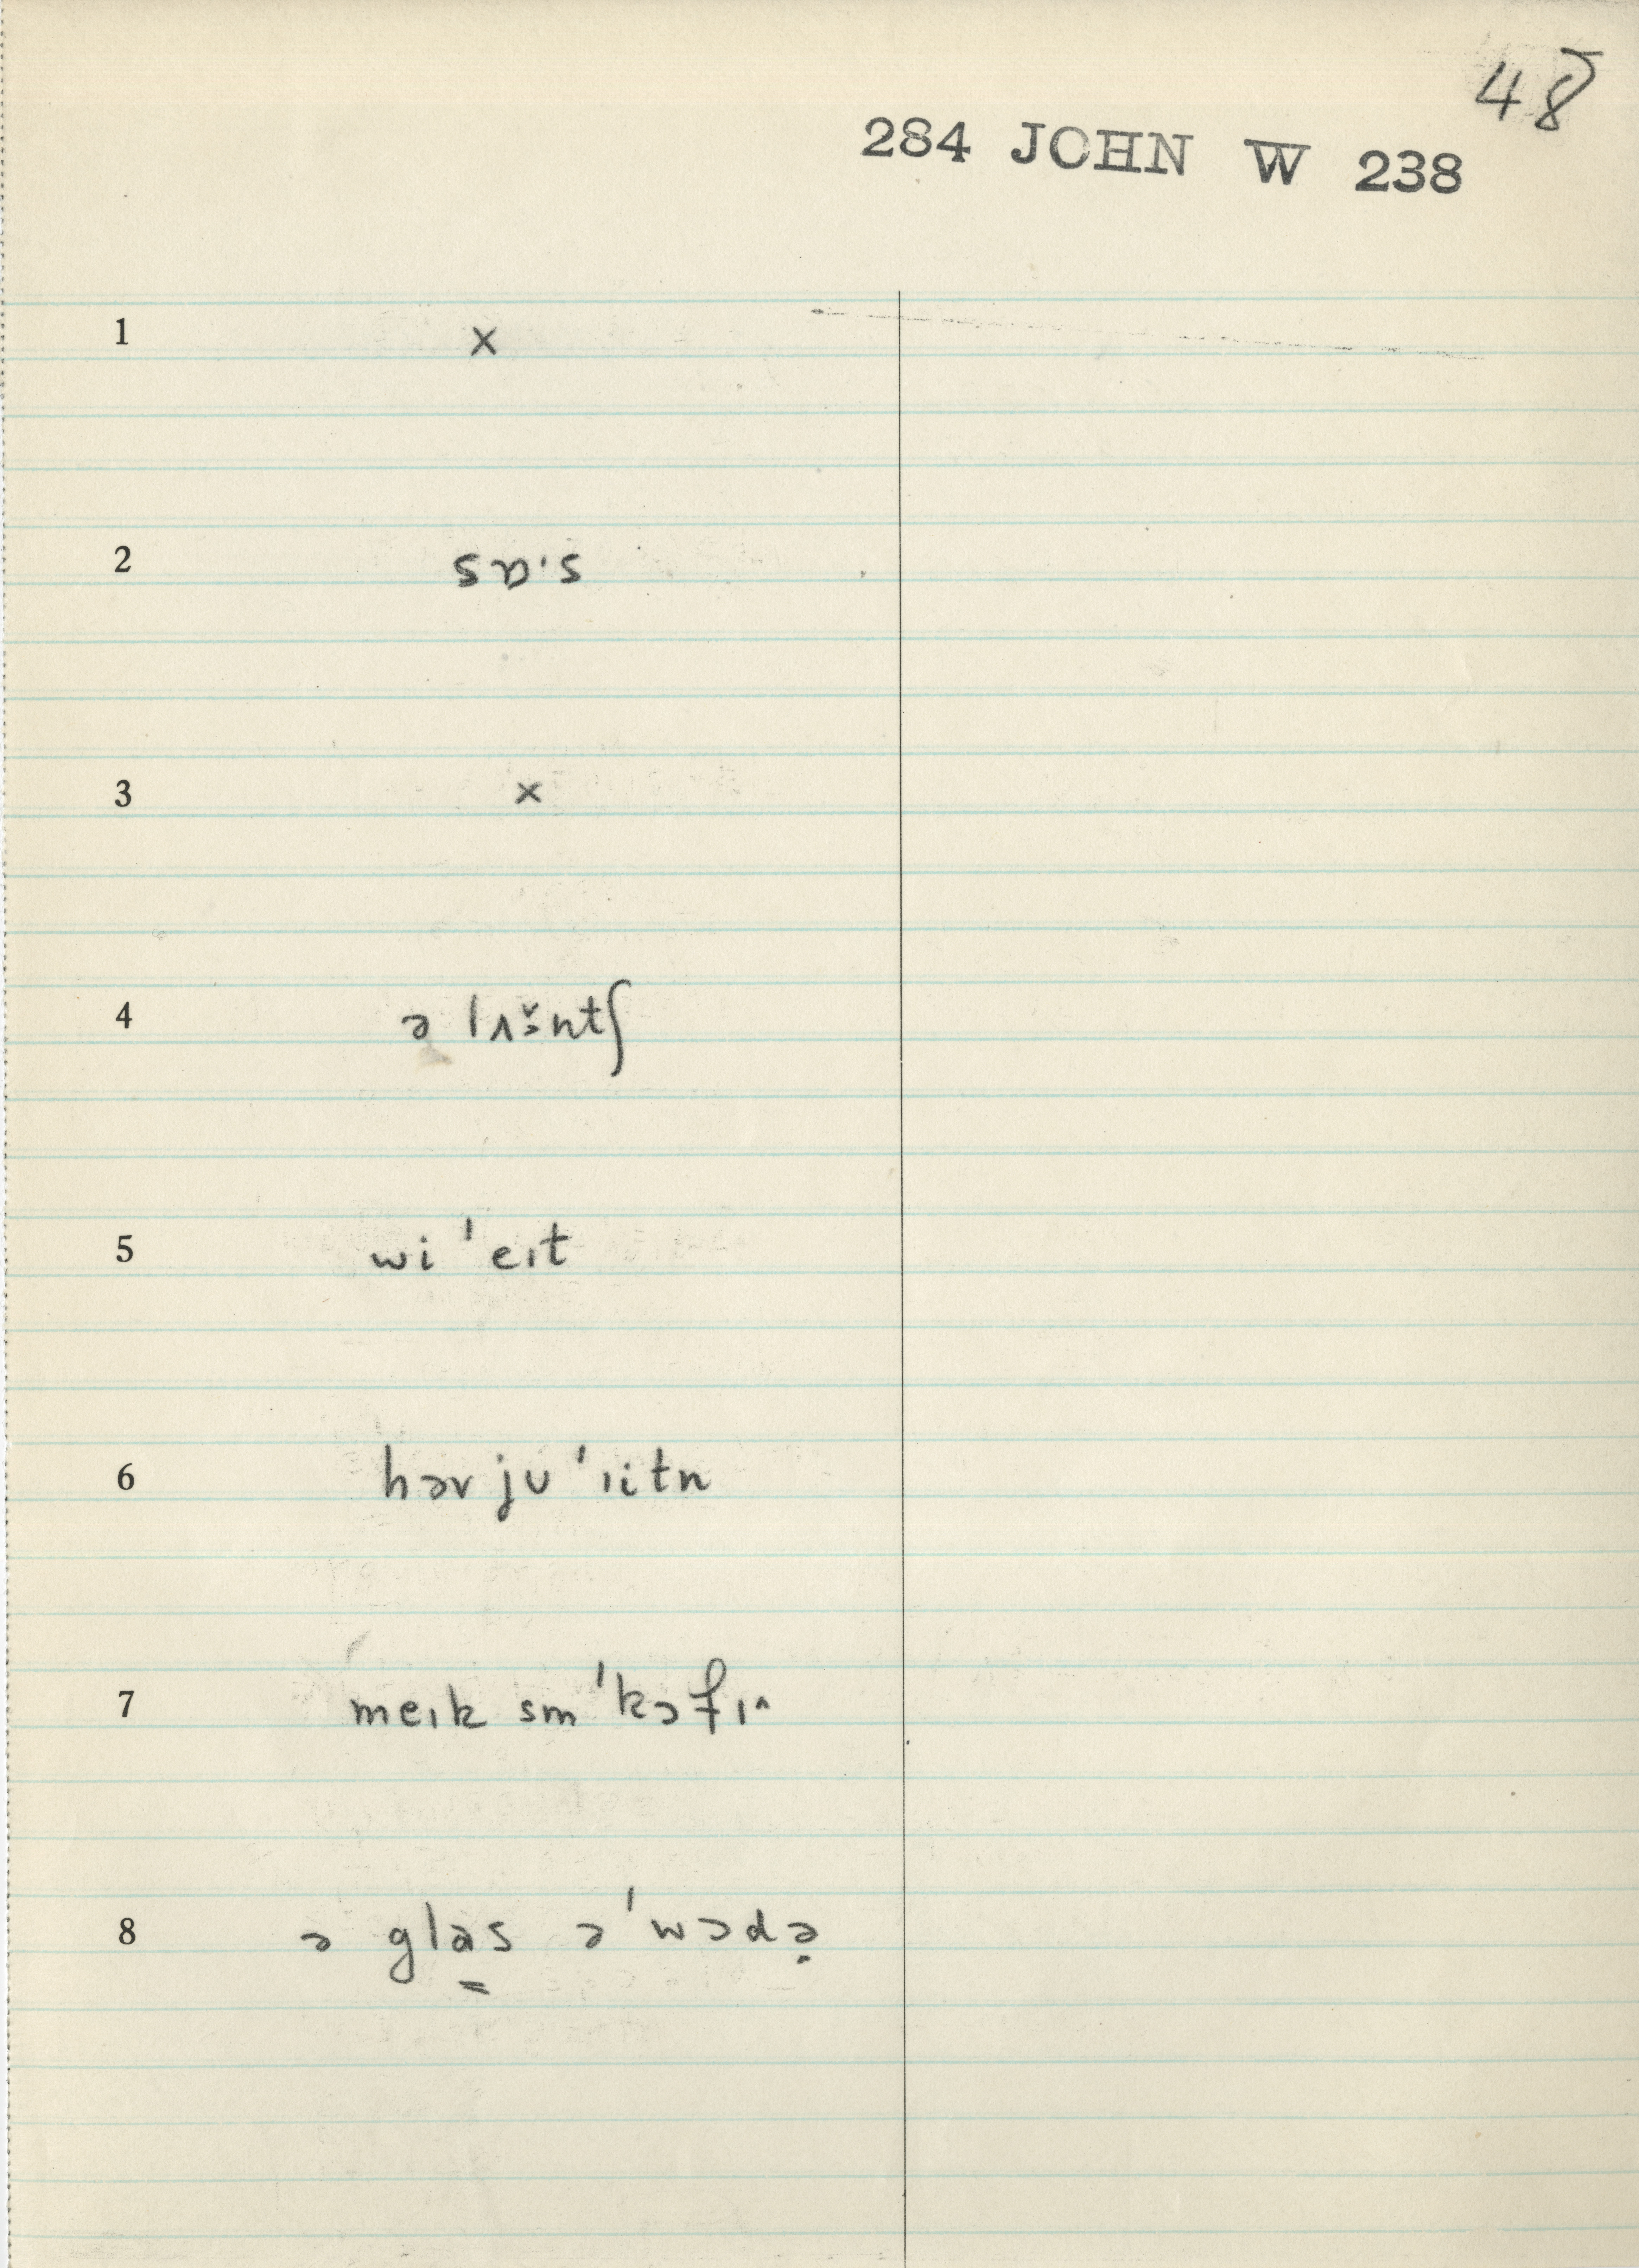 48
284 JOHN W 238
1 x
2 sɒ·s
3 x
4 ə lʌə̯̆ntʃ
5 wi 'eɪt
6 həv ju 'ɪitn
7 meɪk sm 'kɔfɪ^
8 ə glas̳ ə 'wɔdə̣